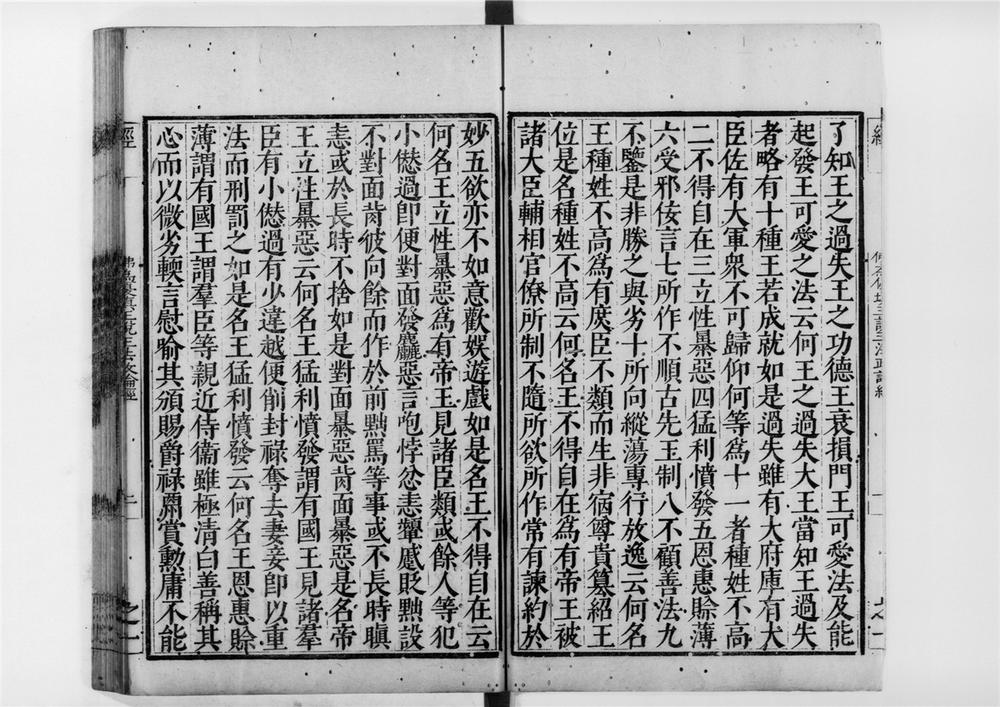 了知王之過失王之功德王衰損門王可愛法及能
起發王可愛之法云何王之過失大王當知王過失
者略有十種王若成就如是過失雖有大府庫有大
臣佐有大軍衆不可歸仰何等爲十一者種姓不高
二不得自在三立性暴惡四猛利憤發五恩惠賒薄
六受邪佞言七所作不順古先王制八不顧善法九
不鑒是非勝之與劣十所向縱蕩專行放逸云何名
王種姓不高爲有庶臣不類而生非宿尊貴簒紹王
位是名種姓不高云何名王不得自在爲有帝王被
諸大臣輔相官僚所制不隨所欲所作常有諫約於
妙五欲亦不如意歡娛遊戲如是名王不得自在云
何名王立性暴惡爲有帝王見諸臣類或餘人等犯
小愆過卽便對面發麤惡言咆悖忿恚顰蹙貶黜設
不對面背彼向餘而作於前黜罵等事或不長時瞋
恚或於長時不捨如是對面暴惡背面暴惡是名帝
王立性暴惡云何名王猛利憤發謂有國王見諸羣
臣有小愆過有少違越便削封祿奪去妻妾卽以重
法而刑罰之如是名王猛利憤發云何名王恩惠賒
薄謂有國王謂羣臣等親近侍衞雖極淸白善稱其
心而以微劣輭言慰喻其頒賜爵祿酬賞勳庸不能
經